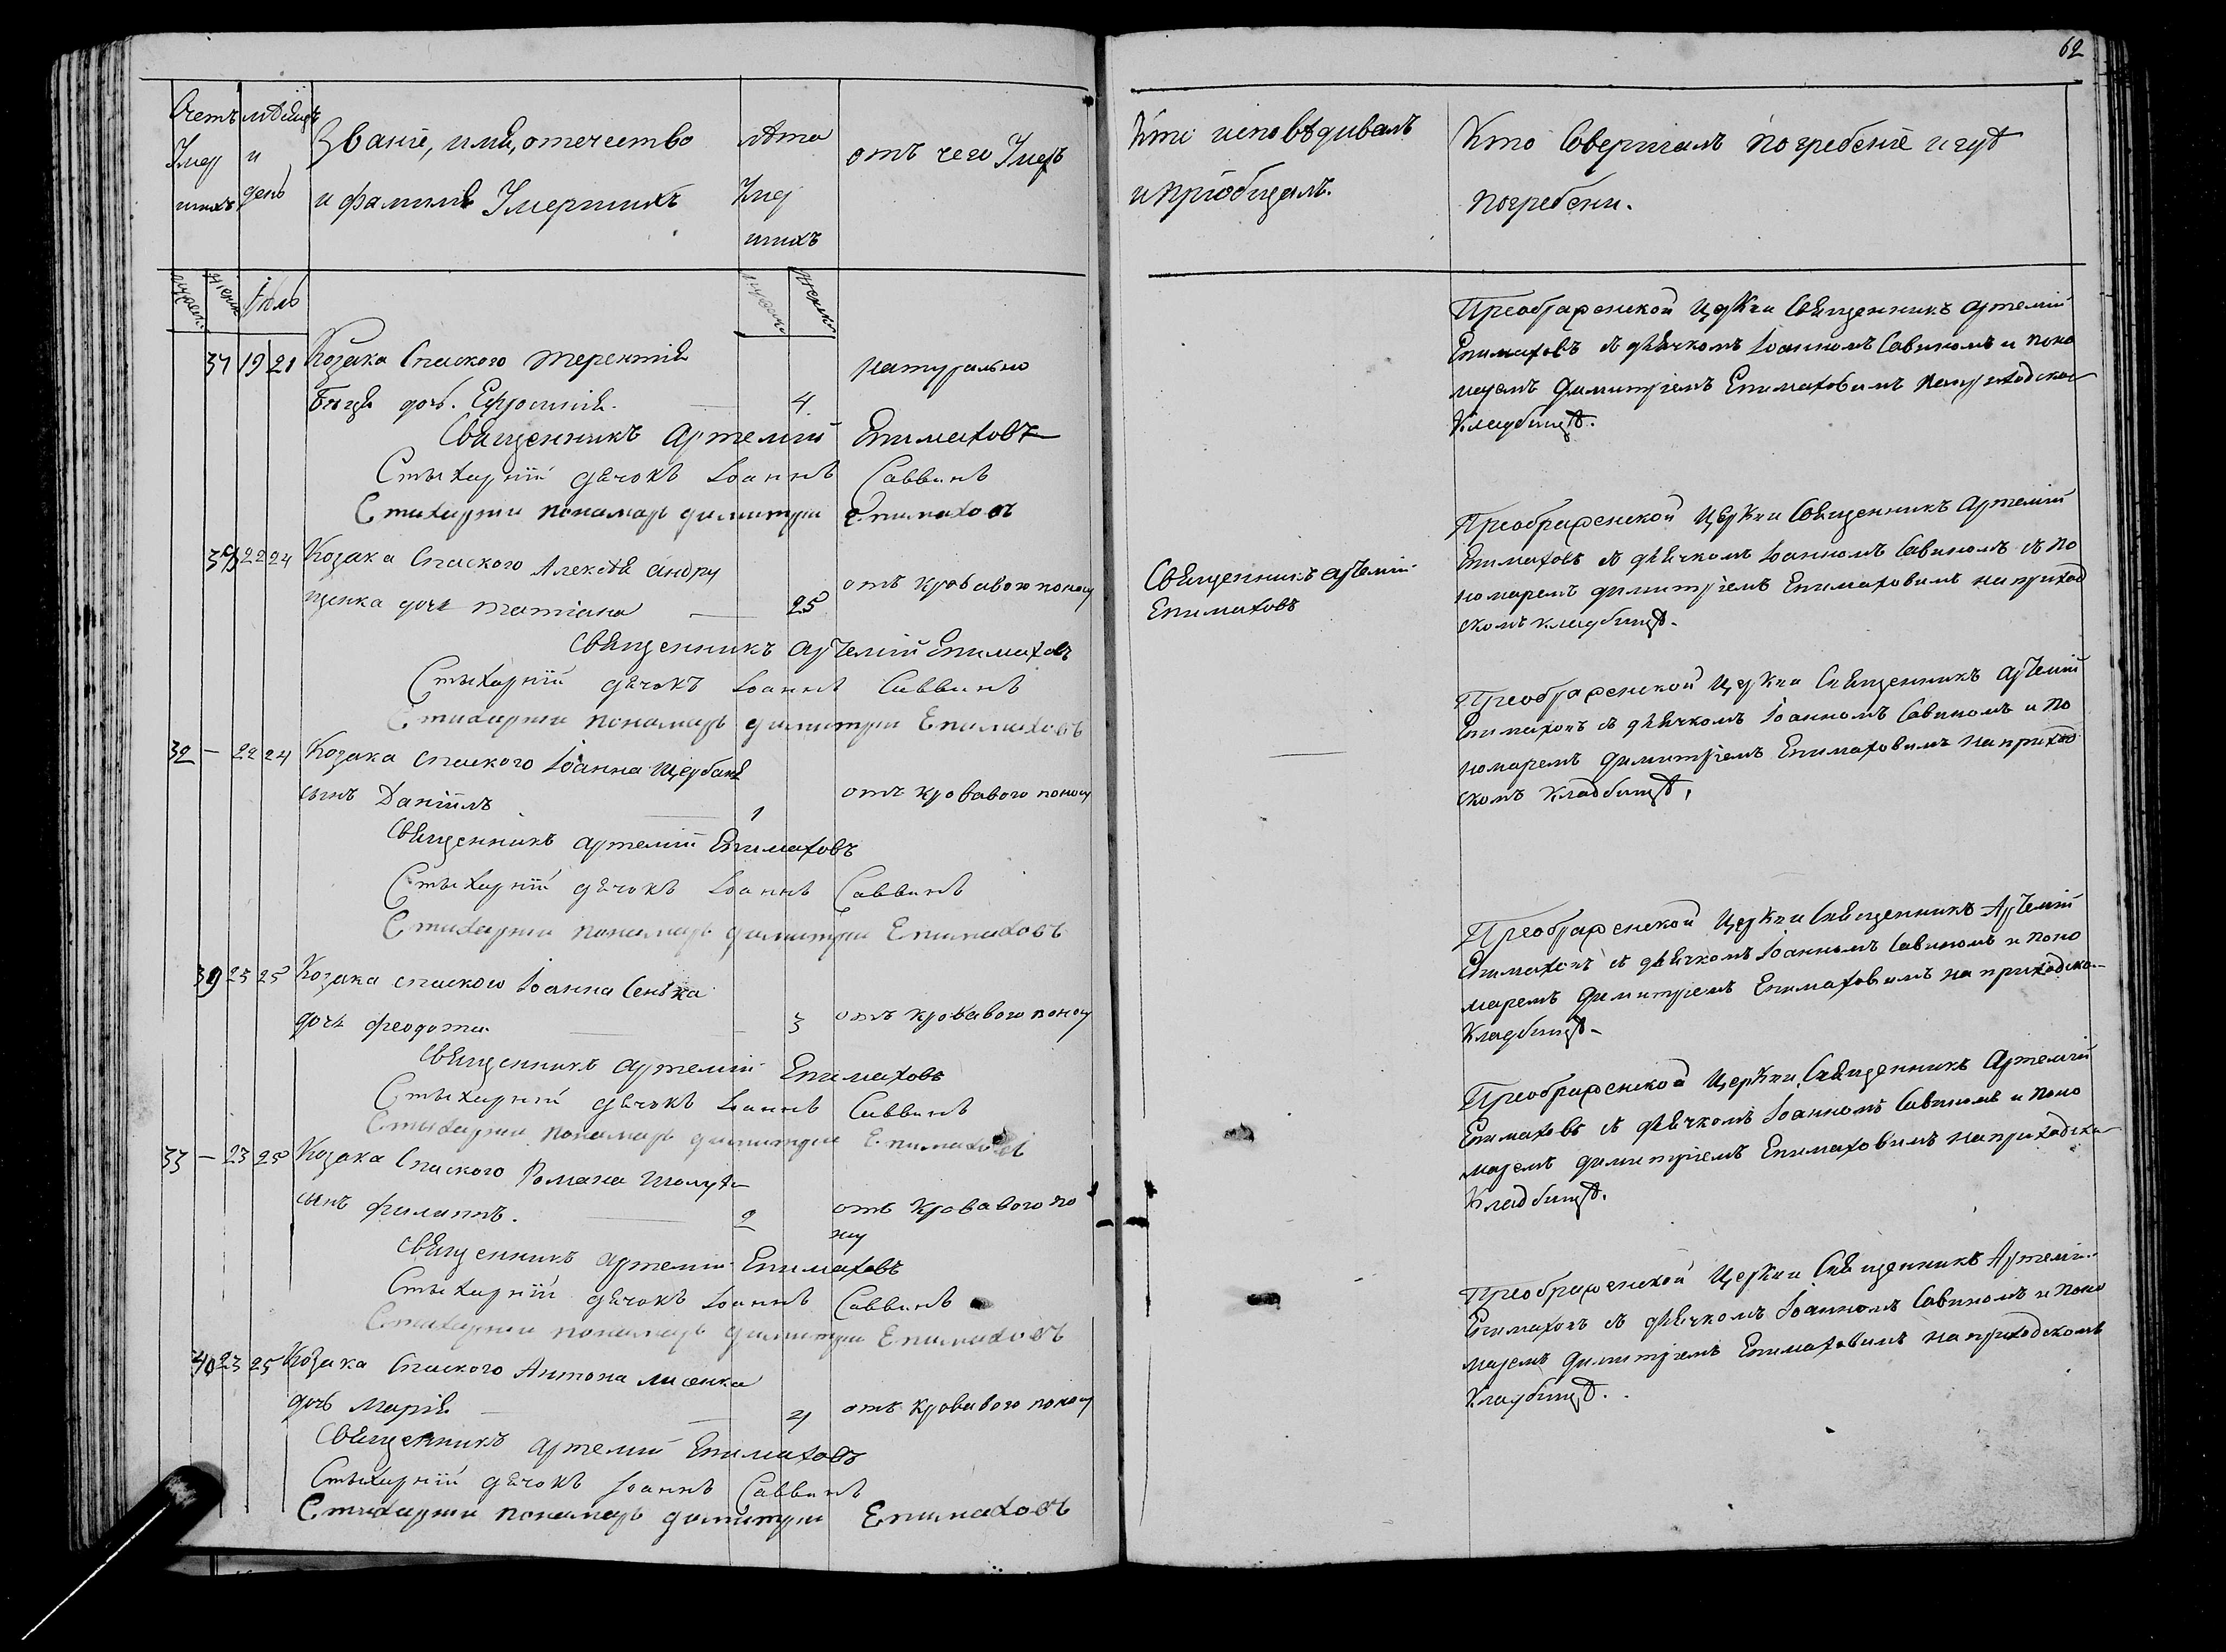 62
Счетъ
Умер
шихъ
мѣсяцъ
и
день
Званіе, имя, отечество
и фамилія Умершихъ
лѣта
Умер
шихъ
отъ чего Умеръ
Кто исповѣдивалъ
и пріобщалъ.
Кто Совершалъ погребеніе и гдѣ
погребени.
мужеск.
женск.
Іюль
мужеск
женска
37 19 21 Козака Спаского Терентія
доч. Ефросинія. — 4.
натурально
Священникъ Артемій Епимаховъ
Стыхарній дячокъ Іоаннъ Саввинъ
Стихарни пономарь димитрии Епимаховъ
Преображенской Церкви Священникъ Артемій
Епимаховъ съ дячкомъ Іоанномъ Савиномъ и поно
маремъ Димитріемъ Епимаховимъ на приходском
Кладбищѣ.
38 22 24 Козака Спаского Алексѣя Андру
щенка дочь Татіана — 25
отъ кровавого поносу
Священникъ Артемій
Епимаховъ
Священникъ Артемій Епимаховъ
Стыхарній дячокъ Іоаннъ Саввинъ
Стихарни пономарь димитрии Епимаховъ
Преображенской Церкви Священникъ Артемій
Епимаховъ съ дячкомъ Іоанномъ Савиномъ съ по
номаремъ димитріемъ Епимаховимъ на приход
скомъ кладбищѣ.
32 — 22 24 Козака Спаского Іоанна Щербака
сынъ Даніилъ — 1
отъ кровавого поносу
—
Священникъ Артемій Епимаховъ
Стыхарній дячокъ Іоаннъ Саввинъ
Стихарни пономарь димитрии Епимаховъ
Преображенской Церкви Священникъ Артемій
Епимаховъ съ дячкомъ Іоанномъ Савиномъ и по
номаремъ Димитріемъ Епимаховимъ на приход
скомъ Кладбищѣ.
39 23 25 Козака спаского Іоанна Сенька
дочь феодота — 3
отъ кровавого поносу
Священникъ Артемій Епимаховъ
Стыхарній дячокъ Іоаннъ Саввинъ
Стихарни пономарь димитрии Епимаховъ
Преображенской Церкви Священникъ Артемій
Епимаховъ съ дячкомъ Іоанномъ Савиномъ и поно
маремъ Димитріемъ Епимаховимъ на приходском
Кладбищѣ
33 — 23 25 Козака Спаского Романа
сынъ филиппъ. — 2
отъ Кровавого по
носу
Священникъ Артемій Епимаховъ
Стыхарній дячокъ Іоаннъ Саввинъ
Стихарни пономарь димитрии Епимаховъ
Преображенской Церкви Священникъ Артемій
Епимаховъ съ дячкомъ Іоанномъ Савиномъ и поно
маремъ димитріемъ Епимаховимъ на приходском
Кладбищѣ.
40 23 25 Козака Спаского Антона Лисенка
дочь Марія — 4
отъ кровавого поносу
Священникъ Артемій Епимаховъ
Стыхарній дячокъ Іоаннъ Саввинъ
Стихарни пономарь димитрии Епимаховъ
Преображенской Церкви Священникъ Артемій
Епимаховъ съ дячкомъ Іоанномъ Савиномъ и поно
маремъ Димитріемъ Епимаховимъ на приходскомъ
Кладбищѣ.